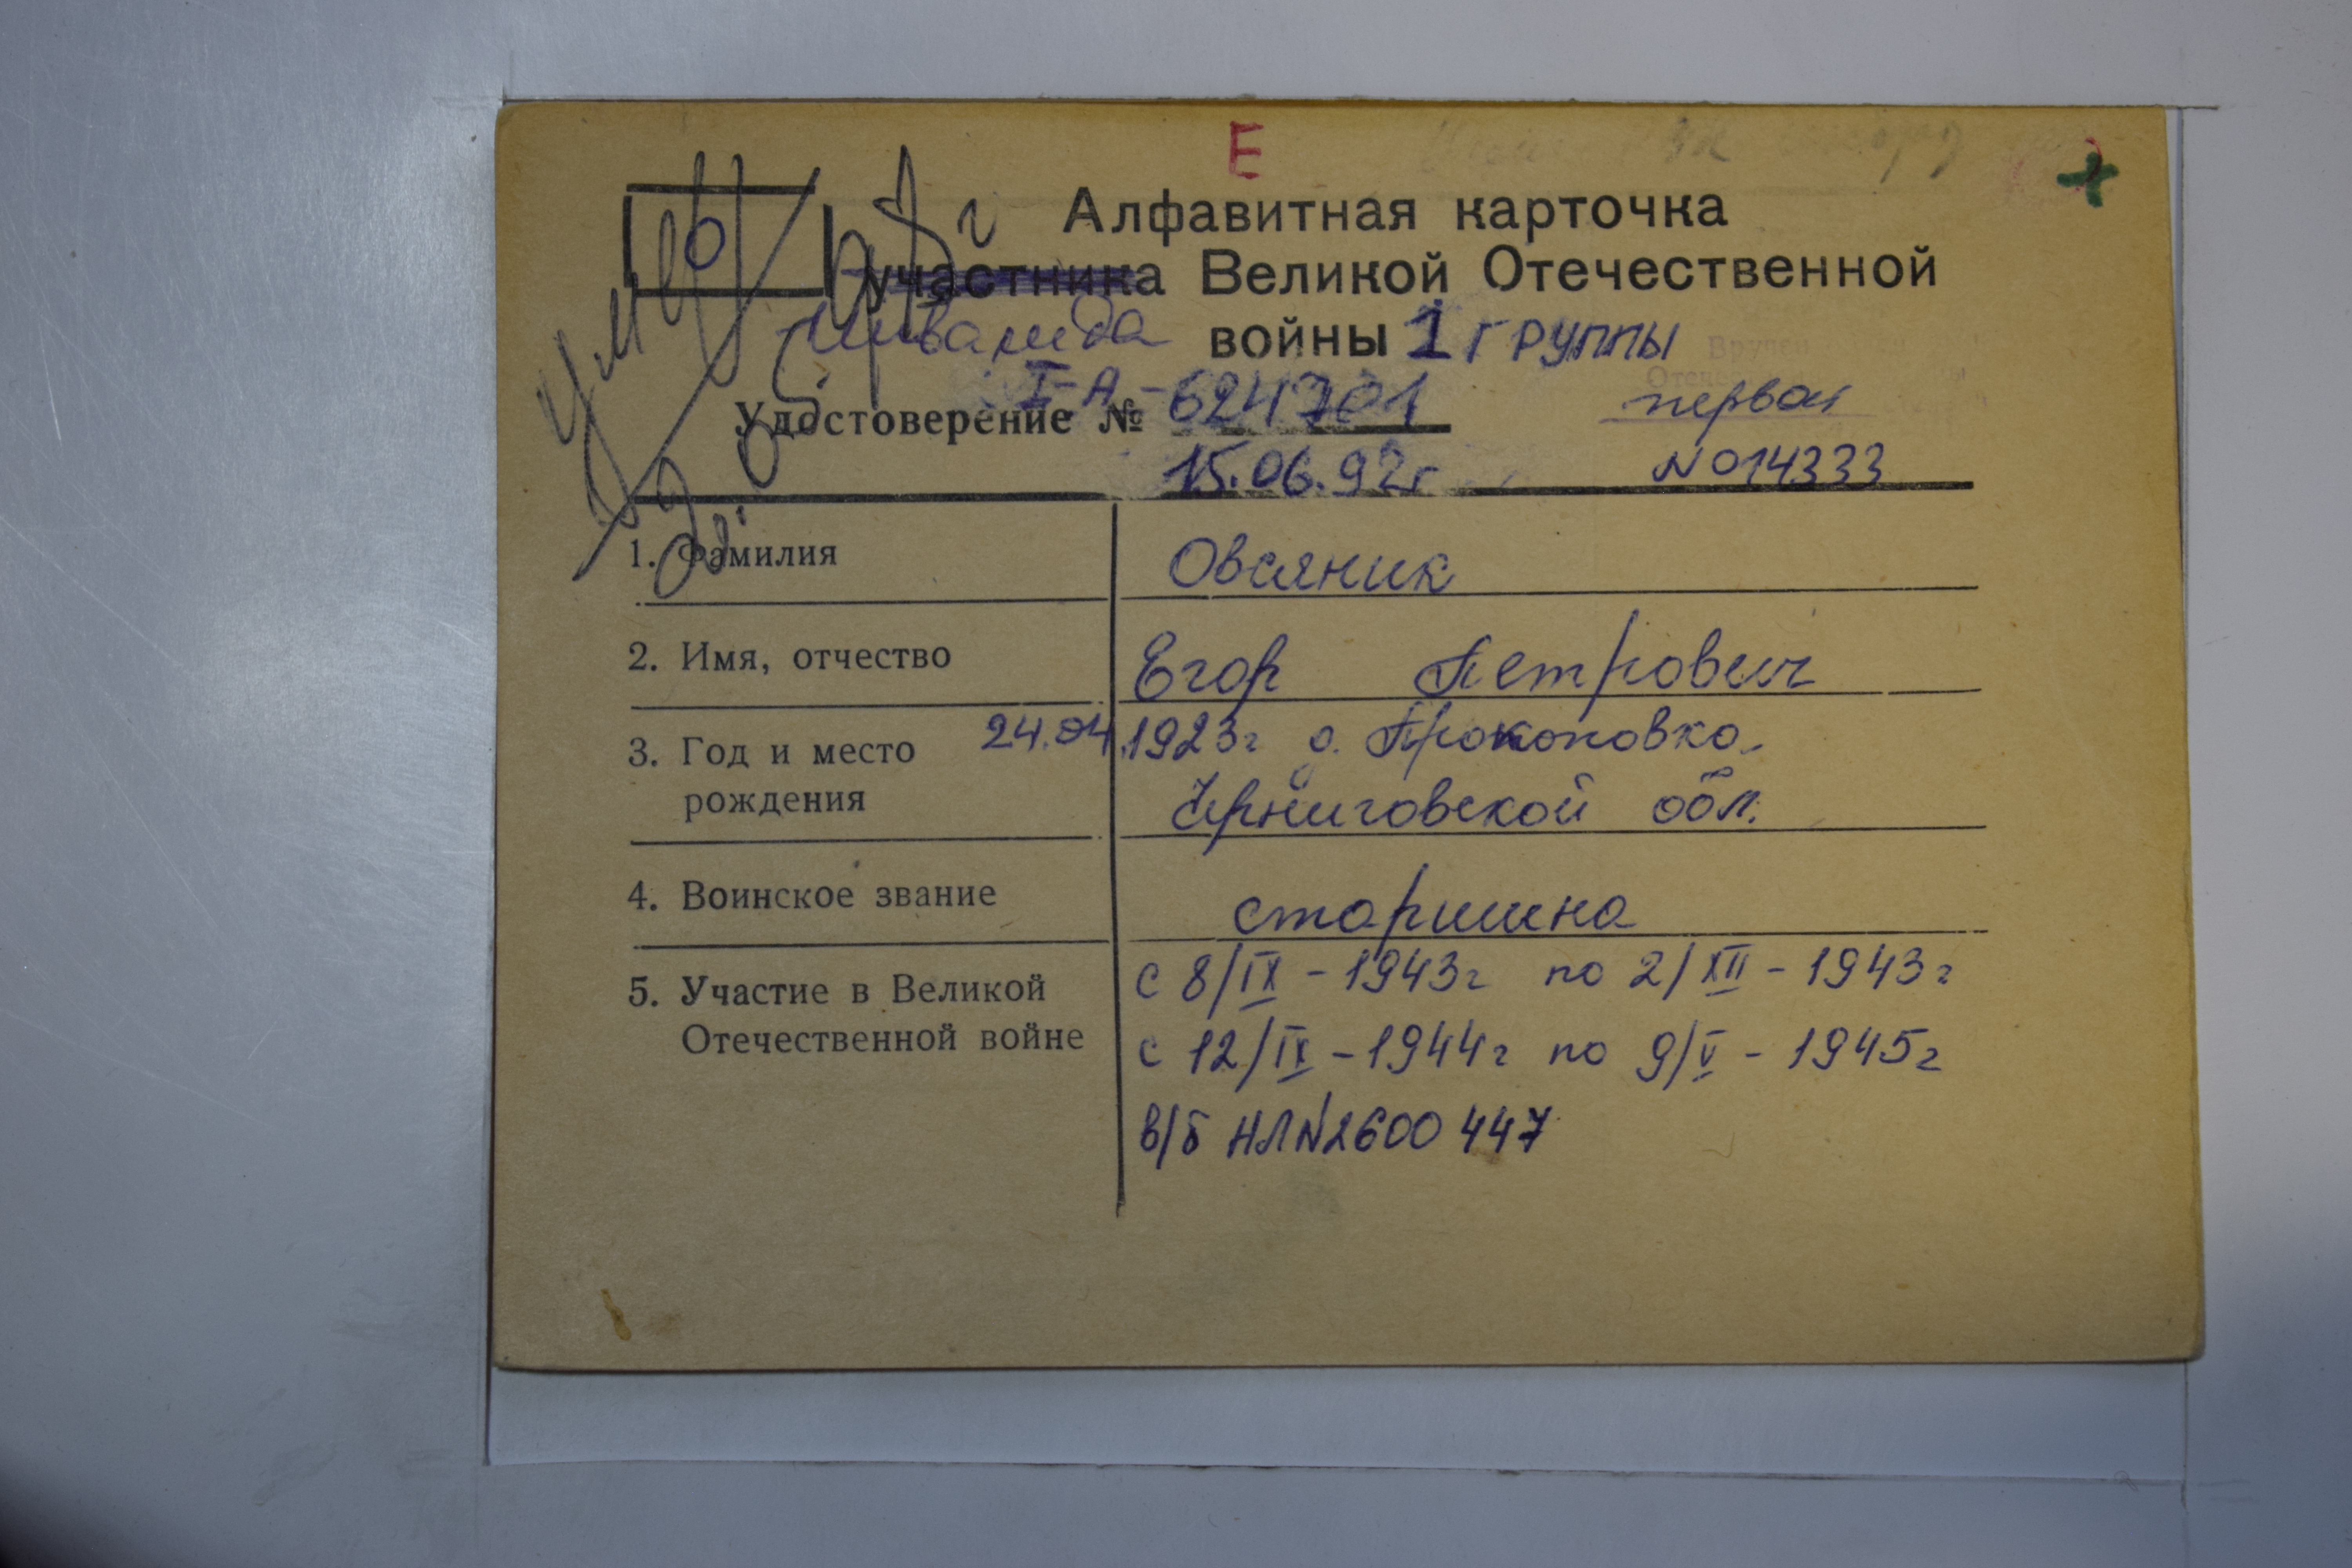 Е
Алфавитная карточка
О участника Великой Отечественной
Инвалида войны 1 группы
Умер
Удостоверение № I-А-624701 первая
15.06.92г N014333
1. Фамилия Овсяник
2. Имя, отчество Егор Петрович
3. Год и место 24.04.1923г д. Прокоповка,
рождения Черниговской обл.
4. Воинское звание старшина
5. Участие в Великой с 8/IX - 1943г по 2/XII - 1943г
Отечественной войне с 12/IX - 1944г по 9/V - 1945г
в/б НЛN2600447